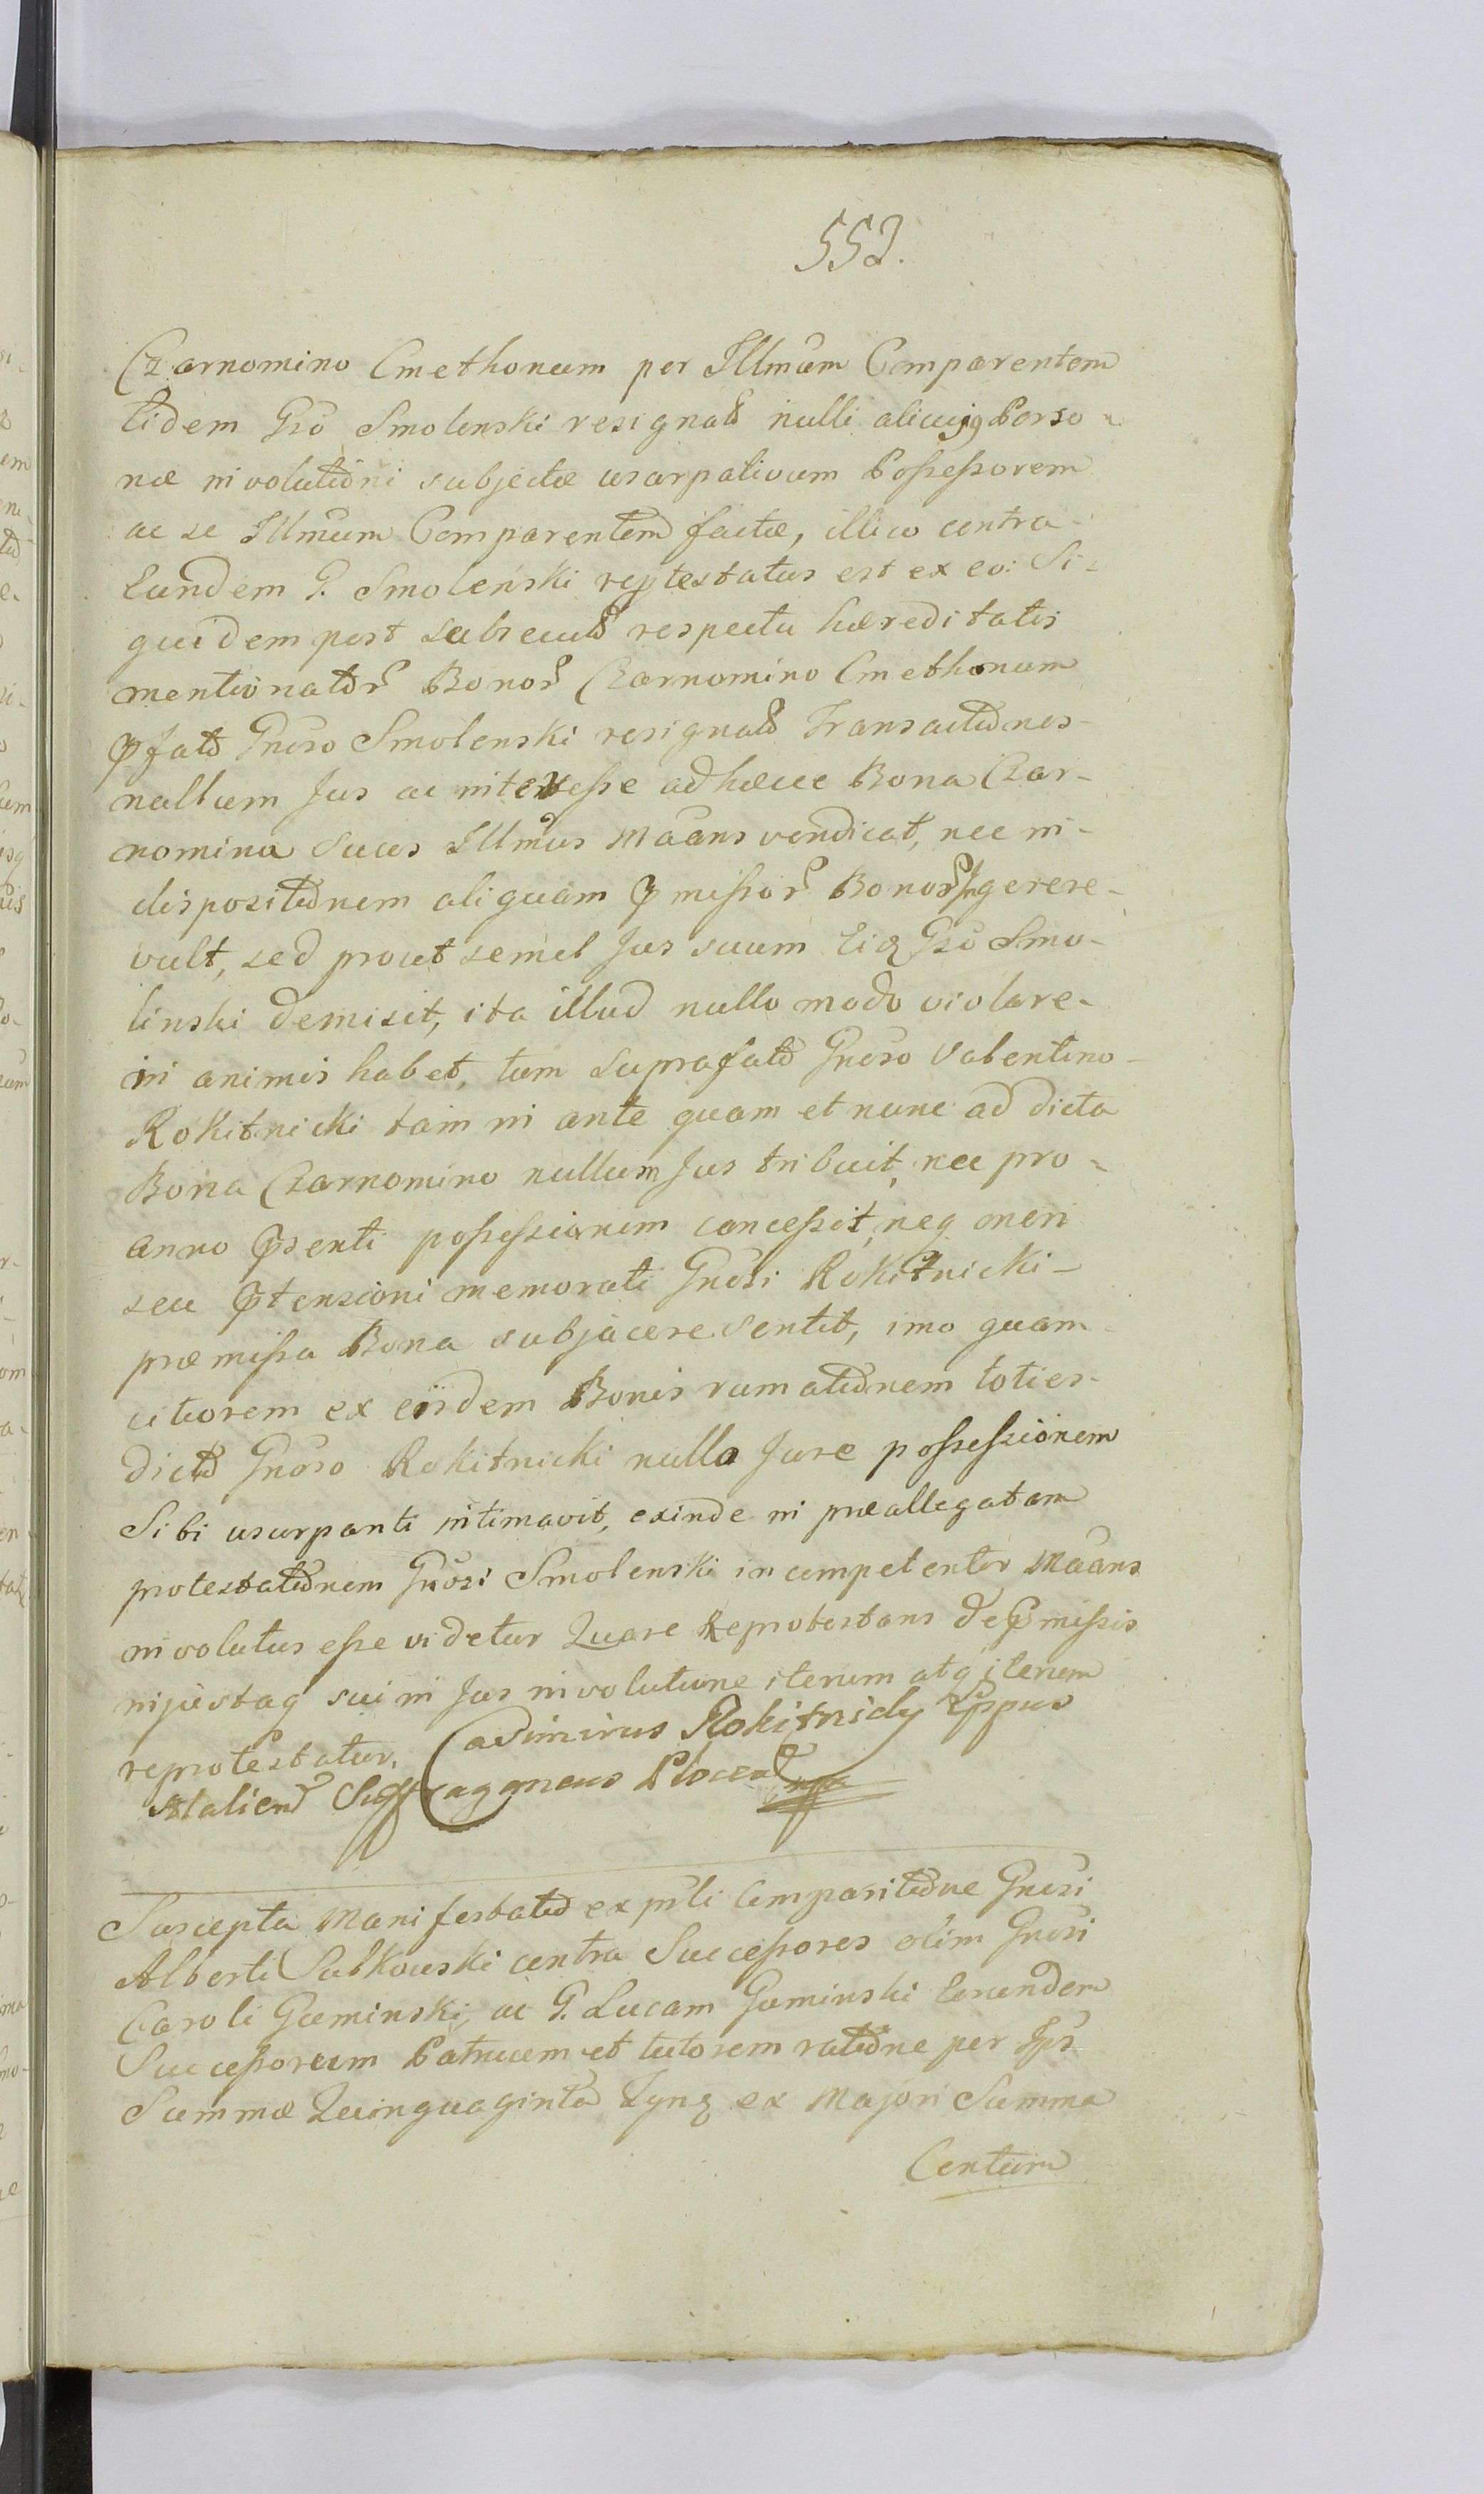 552.
Czarnomino Cmethonum per Illmum Comparentem
Eidem Gso Smolenski resignatt nulli alicujg Perso-
næ involutioni subjectæ usurpativum Possessorem
ac se Illmum Comparentem factæ, illico contra-
Eundem G. Smolenski reptestatus est ex eo: Si-
quidem post subsecutt respectu hæreditatis
mentionator Bonor Czarnomino Cmethonum
pfatt Gneroso Smolenski resignatt Transactiones-
nullum Jus ac interesse ad hæcce Bona Czar-
nomina Suus Illmus Maans vendicat, nec in-
dispositionem aliquam pmissor Bonor Ingerere-
vult, sed prout semel Jus suum Eiq Gso Smo-
linski demisit, ita illud nullo modo violare-
in animis habet, tum suprafatt Gnoso Valentino-
Rokitnicki tam in ante quam et nunc ad dicta
Bona Czarnomino nullum Jus tribuit, nec pro-
anno psenti possessionem concessit, neq oneri
seu ptensioni memorati Gnosi Rokitnicki-
præmissa Bona subjacere sentit, imo quam-
citiorem ex eisdem Bonis rumationem toties-
dictt Gnoso Rokitnicki nullo Jure possessionem
Sibi usurpanti intimavit, exinde in præallegatam
protestationem Gnosi Smolenski incompetenter Maans
involutus esse videtur Quare Reprotestans de pmissis
injustaq sui in Jus involutione iterum atq iterum
reprotestatur. Casimirus Rokitnicky Eppus
Italien Suffraganeus Plocen mpa
Suscepta Manifestatio ex psli Comparitione Gnosi
Alberti Sutkowski contra Successores olim Gnosi
Caroli Guminski, ac G. Lucam Guminski Eorundem
Successorum Patruum et tutorem ratione per Ips
Summæ Quinquaginta Tynq ex Majori Summa
Centum